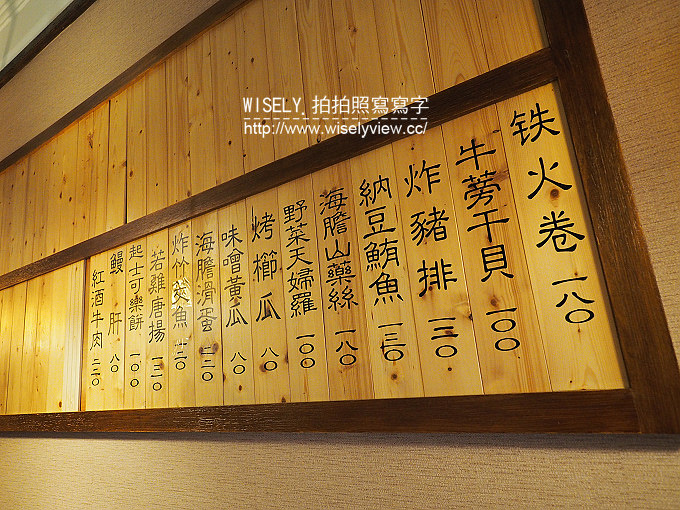 WISELY 拍拍照寫寫字
http://www.wiselyview.cc/
铁火卷 一八〇
牛蒡干貝 一〇〇
炸豬排 一三〇
納豆鮪魚 一三〇
海膽山藥絲 一八〇
野菜天婦羅 一〇〇
烤櫛瓜 八〇
味噌黃瓜 八〇
海膽滑蛋 二二〇
炸竹筴魚 一三〇
若雞唐揚 一三〇
起士可樂餅 一〇〇
鰻肝 八〇
紅酒牛肉 二二〇